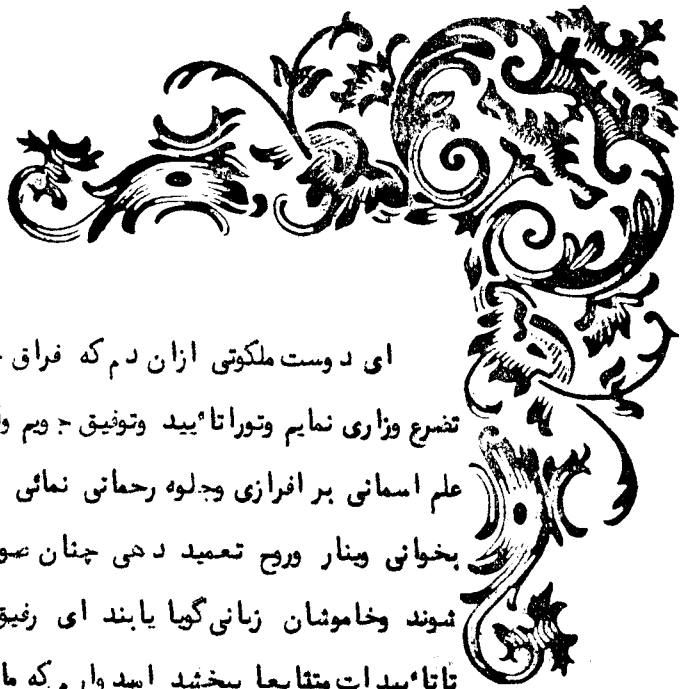 ای دوست ملکوتی ازان دم که فراق
تضرع وزاری نمایم وتورا تائید وتوفیق جویم
علم اسمانی بر افرازی وجلوه رحمانی نمائی
بخوانی وبنار وروح تعمید دهی چنان
شوند وخاموشان زبانی گویا یابند ای رفیق
تاتائیدات متتابعا ببخشد امیدوارم که